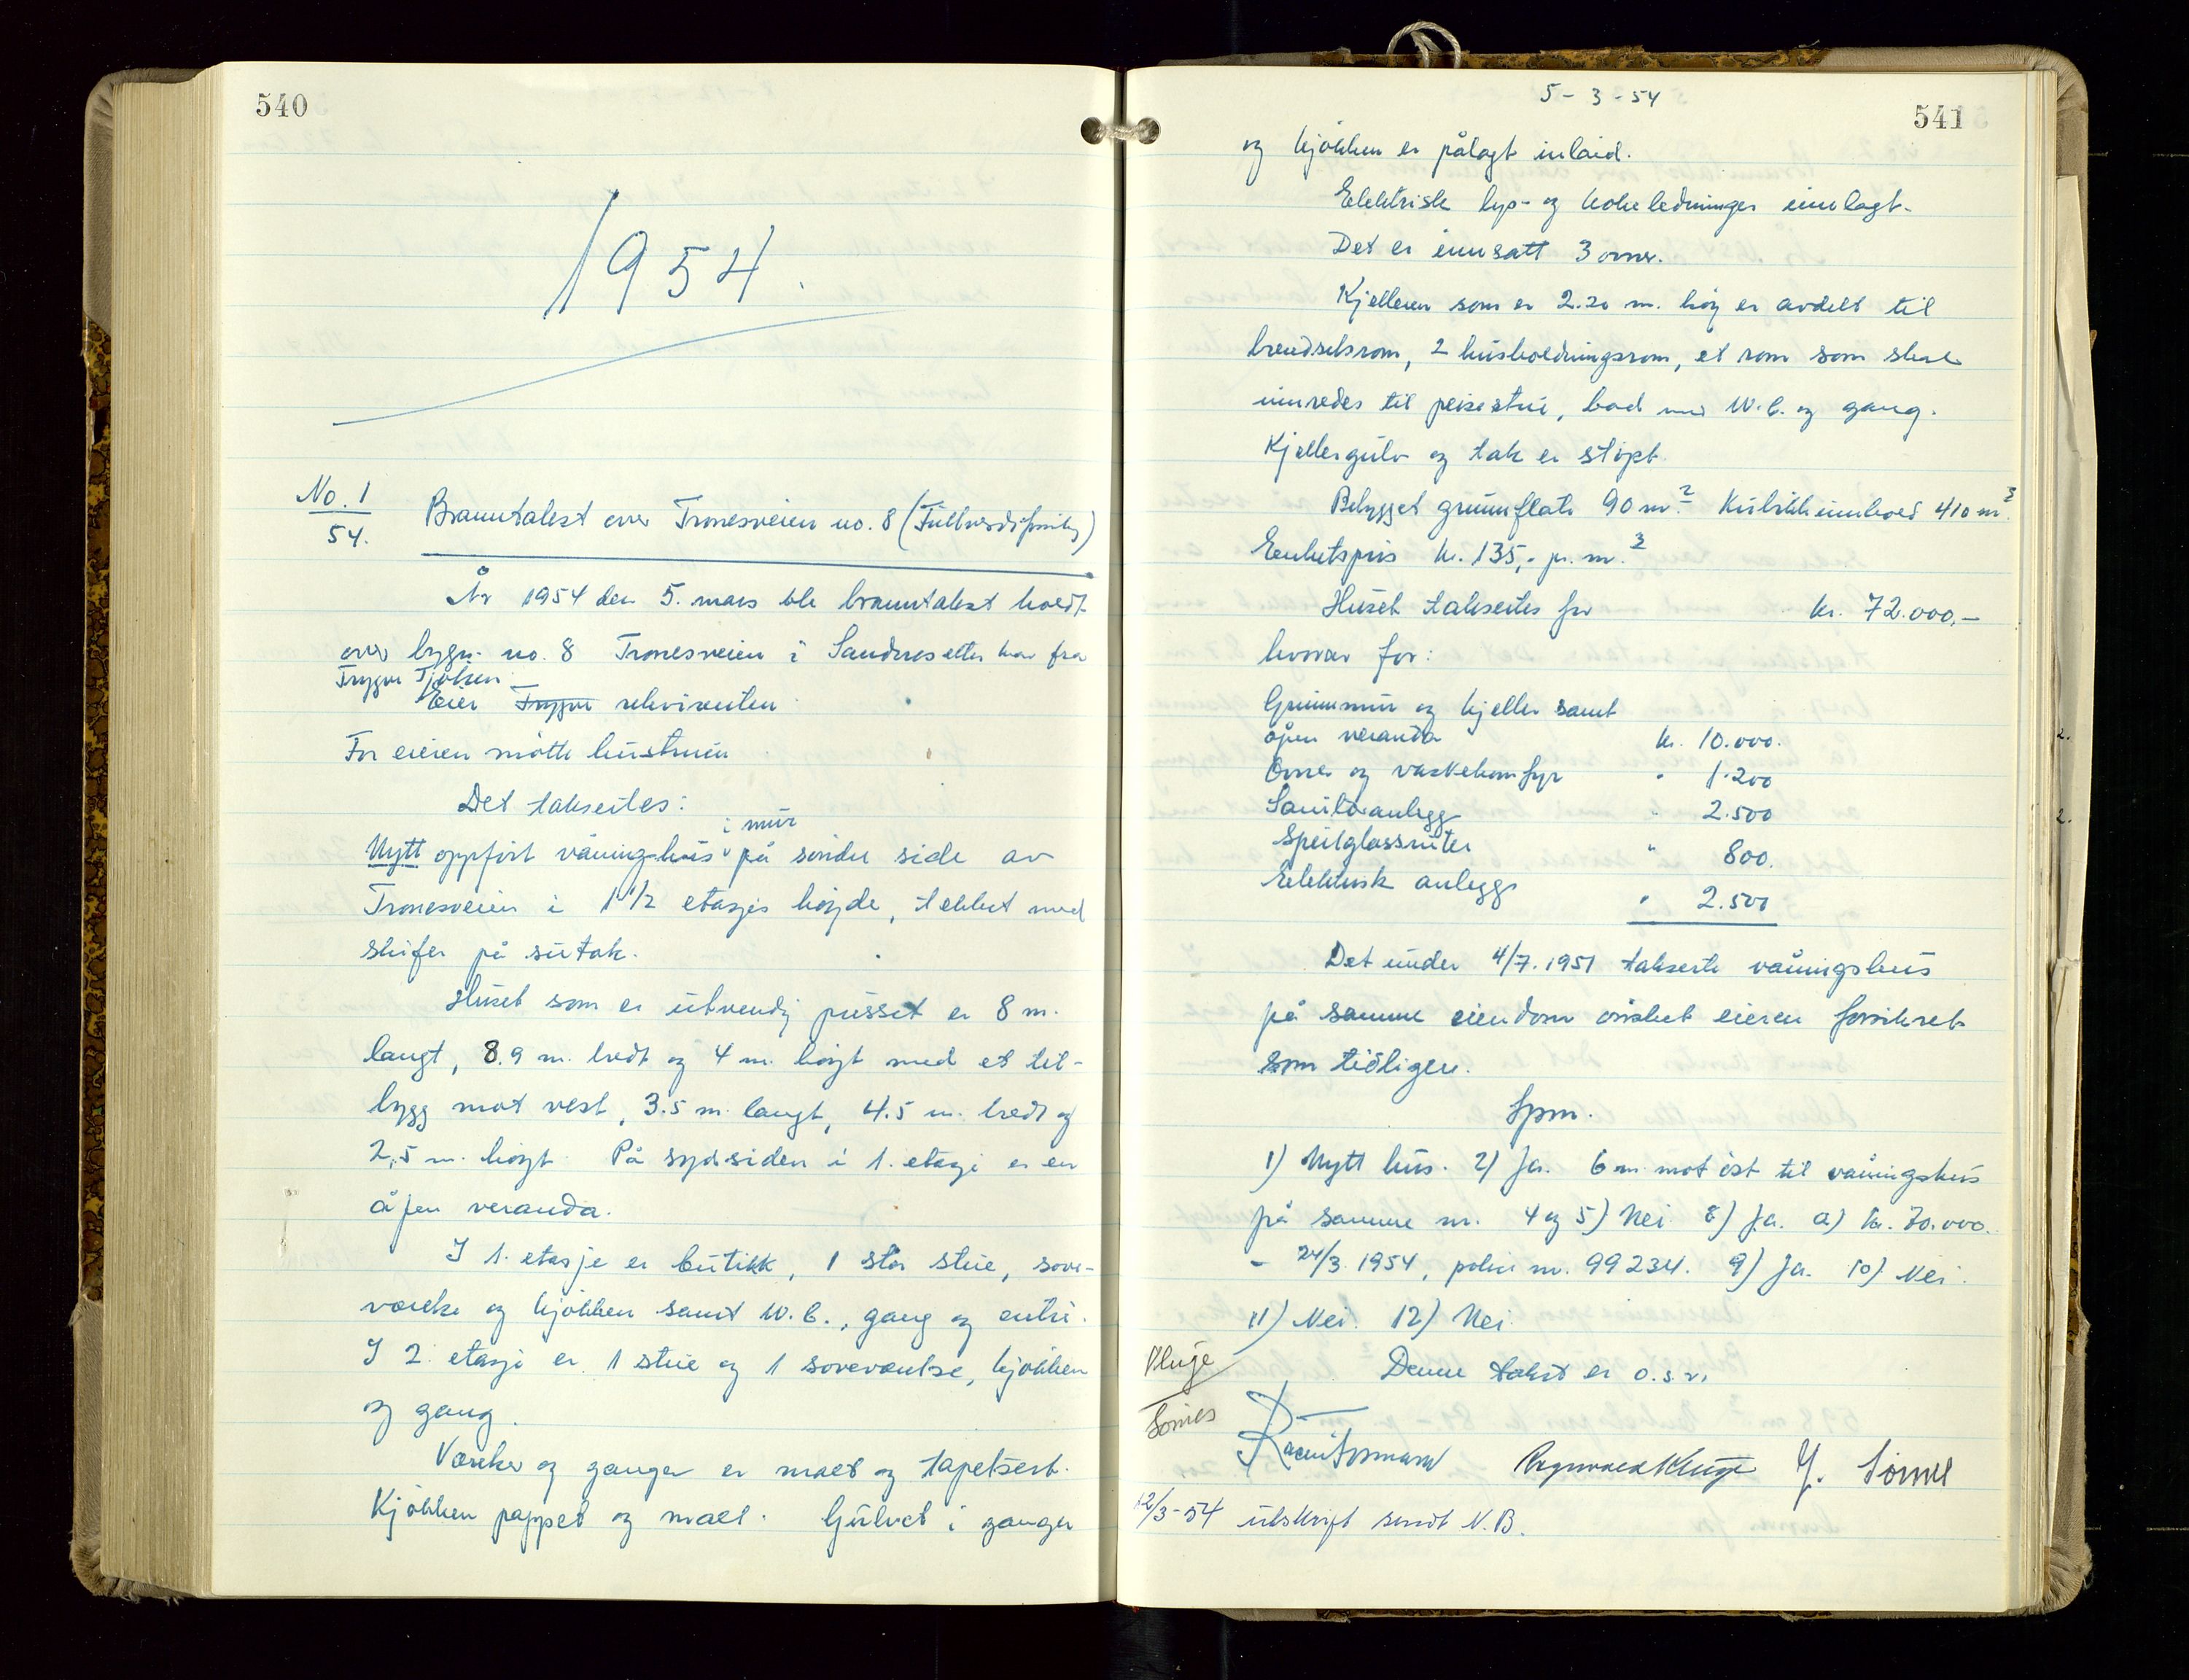 540
1954.
No. 1
54.
Branntakst over Tronesveien no. 8 (Fullverdiforsikr)
År 1954 den 5. mars ble branntakst holdt
over bygn. no. 8 Tronesveien i Sandnes etter krav fra
Trygve Tjølsen
Eier Trygve rekvirenten
For eieren møtte hustruen
Det takseres:
i mur
Nytt oppført våningshus på søndre side av
Tronesveien i 1 1/2 etasjes høyde, tekket med
skifer på sutak.
Huset som er utvendig pusset er 8 m.
langt, 8.9 m. bredt og 4 m. høyt med et til-
bygg mot vest, 3.5 m. langt, 4.5 m. bredt og
2,5 m. høyt. På sydsiden i 1. etasje er en
åpen veranda.
I 1. etasje er butikk, 1 stor stue, sove-
værelse og kjøkken samt W.C., gang og entre.
I 2. etasje er 1 stue og 1 soveværelse, kjøkken
og gang.
Værelser og ganger er malt og tapetsert.
Kjøkken pappet og malt. Gulvet i ganger
5-3-54
541
og kjøkken er pålagt inlaid.
Elektrisk lys- og kokeledninger innlagt.
Det er innsatt 3 ovner.
Kjelleren som er 2.20 m. høy er avdelt til
brendselsrom, 2 husholdningsrom, et rom som skal
innredes til peisestue, bad med W.C. og gang.
Kjellergulv og tak er støpt.
Bebygget grunnflate 90 m.2 Kubikkinnhold 410 m3.
Enhetspris kr. 135,- pr. m.3
Huset takseres for kr. 72.000,-
hvorav for:
Grunnmur og kjeller samt
åpen veranda kr. 10.000.
Ovner og vaskekomfyr " 1.200
Sanitæranlegg " 2.500
Speilglassruter " 800.
Elektrisk anlegg " 2.500
Det under 4/7.1951 takserte våningshus
på samme eiendom ønsket eieren forsikret
som tidligere.
Spm.
1) Nytt hus. 2) Ja. 6 m. mot øst til våningshus
på samme nr. 4 og 5) Nei 8) Ja. a) kr. 70.000.
- 24/3.1954, polise nr. 99234. 9) Ja. 10) Nei.
11) Nei. 12) Nei.
Kluge
Denne takst er o.s.v.
Sømes
Ragnvald Kluge
12/3-54 utskrift sendt N.B.